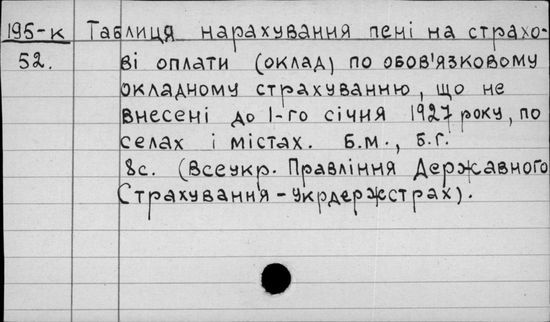 195-к Таблиця нарахування пені на страхо-
52. ві оплати (оклад) по обов'язковому
окладному страхуванню, що не
внесені до 1-го січня 1927 року, по
селах і містах. Б.м., Б.г.
8с. (Всеукр. Правління Державного
Страхування-Укрдержстрах).